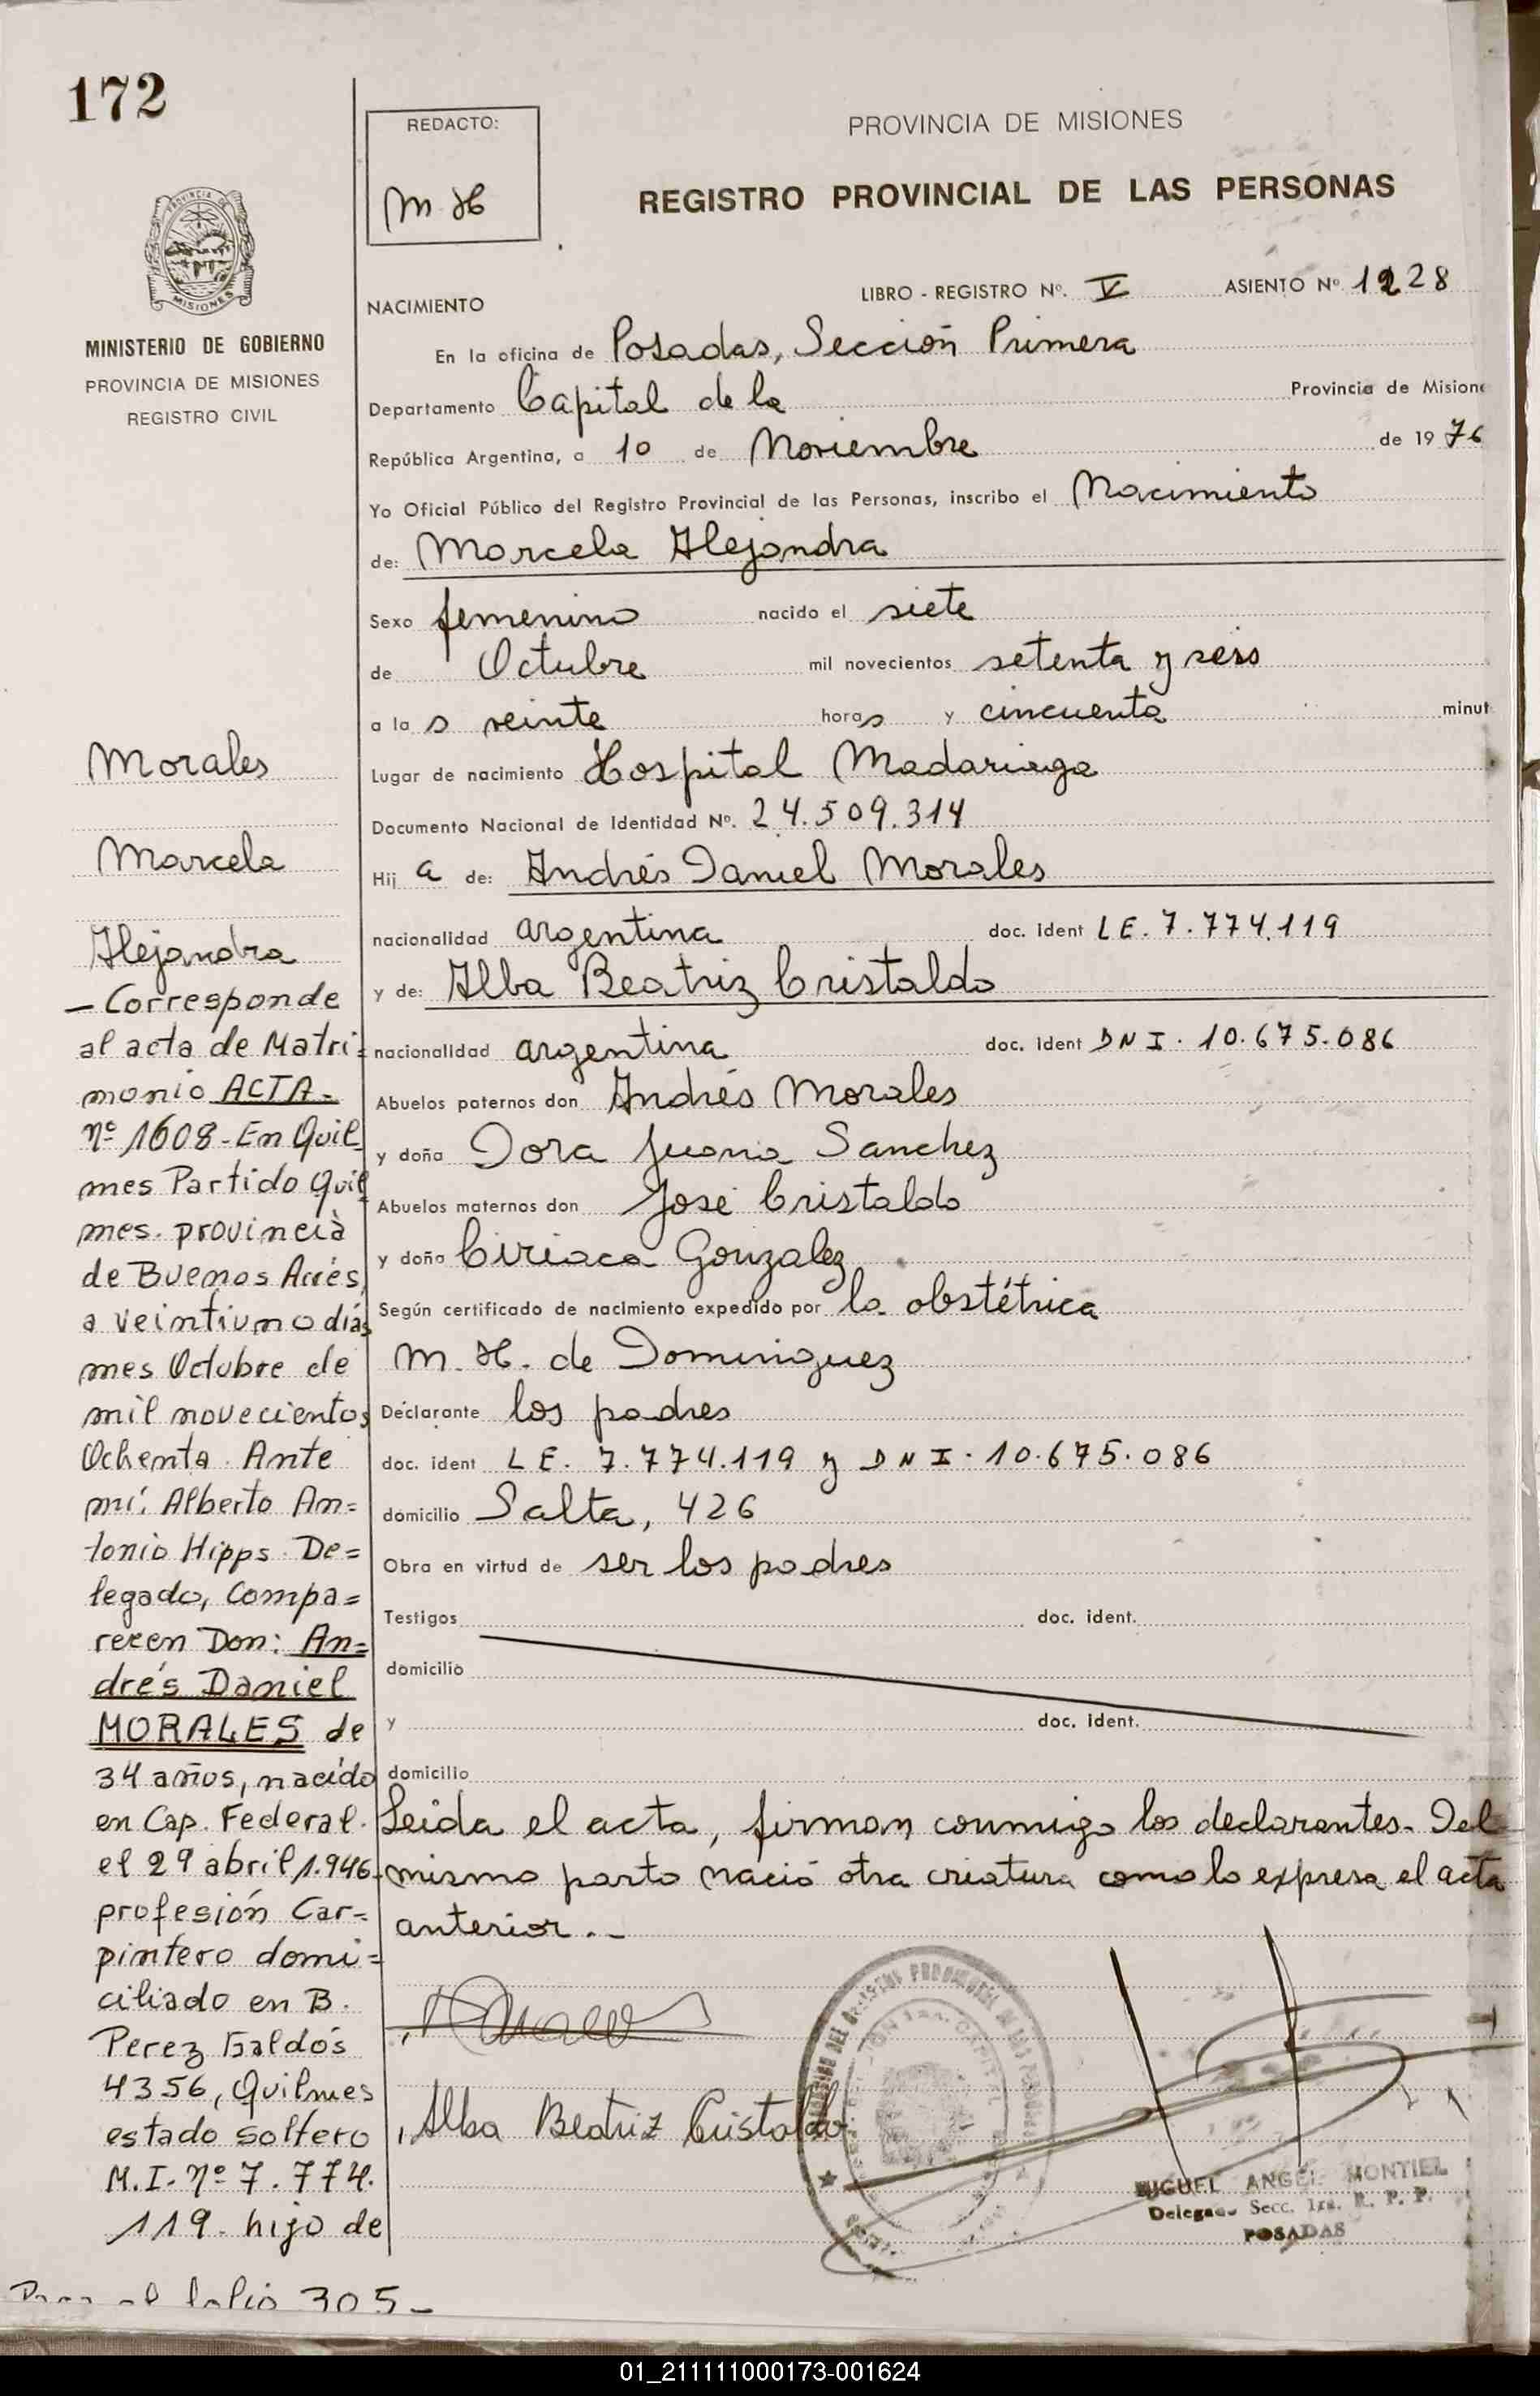 172
REDACTO:
M. H
PROVINCIA DE MISIONES
REGISTRO PROVINCIAL DE LAS PERSONAS
MISIONES
MINISTERIO DE GOBIERNO
PROVINCIA DE MISIONES
REGISTRO CIVIL
NACIMIENTO
LIBRO - REGISTRO Nº. V ASIENTO Nº 1228
En la oficina de Posadas, Sección Primera
Departamento Capital de la Provincia de Misione
República Argentina, a 10 de Noviembre de 1976
Yo Oficial Público del Registro Provincial de las Personas, inscribo el Nacimiento
de: Marcela Alejandra
Sexo femenino nacido el siete
de Octubre mil novecientos setenta y seis
a la s veinte horas y cincuenta minut
Lugar de nacimiento Hospital Madariaga
Documento Nacional de Identidad Nº. 24.509.314
Hij a de: Andrés Daniel Morales
nacionalidad argentina doc. ident LE. 7.774.119
y de: Alba Beatriz Cristaldo
nacionalidad argentina doc. ident DNI. 10.675.086
Abuelos paternos don Andrés Morales
y doña Dora Juana Sanchez
Abuelos maternos don José Cristaldo
y doña Ciriaca Gonzalez
Según certificado de nacimiento expedido por la obstétrica
M. H. de Dominguez
Declarante los padres
doc. ident LE. 7.774.119 y DNI. 10.675.086
domicilio Salta, 426
Obra en virtud de ser los padres
Testigos doc. ident.
domicilio
y doc. ident.
domicilio
Leida el acta, firman conmigo los declarantes. Del
mismo parto nació otra criatura como lo expresa el acta
anterior.-
Alba Beatriz Cristaldo
MIGUEL ANGEL MONTIEL
Delegado Secc. 1ra. R. P. P.
POSADAS
Morales
Marcela
Alejandra
- Corresponde
al acta de Matri=
monio ACTA-
Nº 1608-En Quil
mes Partido Quil
mes. provincia
de Buenos Aires,
a veintiuno días
mes Octubre de
mil novecientos
Ochenta. Ante
mí: Alberto An=
tonio Hipps. De=
legado, Compa=
recen Don: An=
drés Daniel
MORALES de
34 años, nacido
en Cap. Federal.
el 29 abril 1.946-
profesión Car-
pintero domi=
ciliado en B.
Perez Galdós
4356, Quilmes
estado soltero
M.I. Nº 7.774.
119. hijo de
folio 305-
01_211111000173-001624